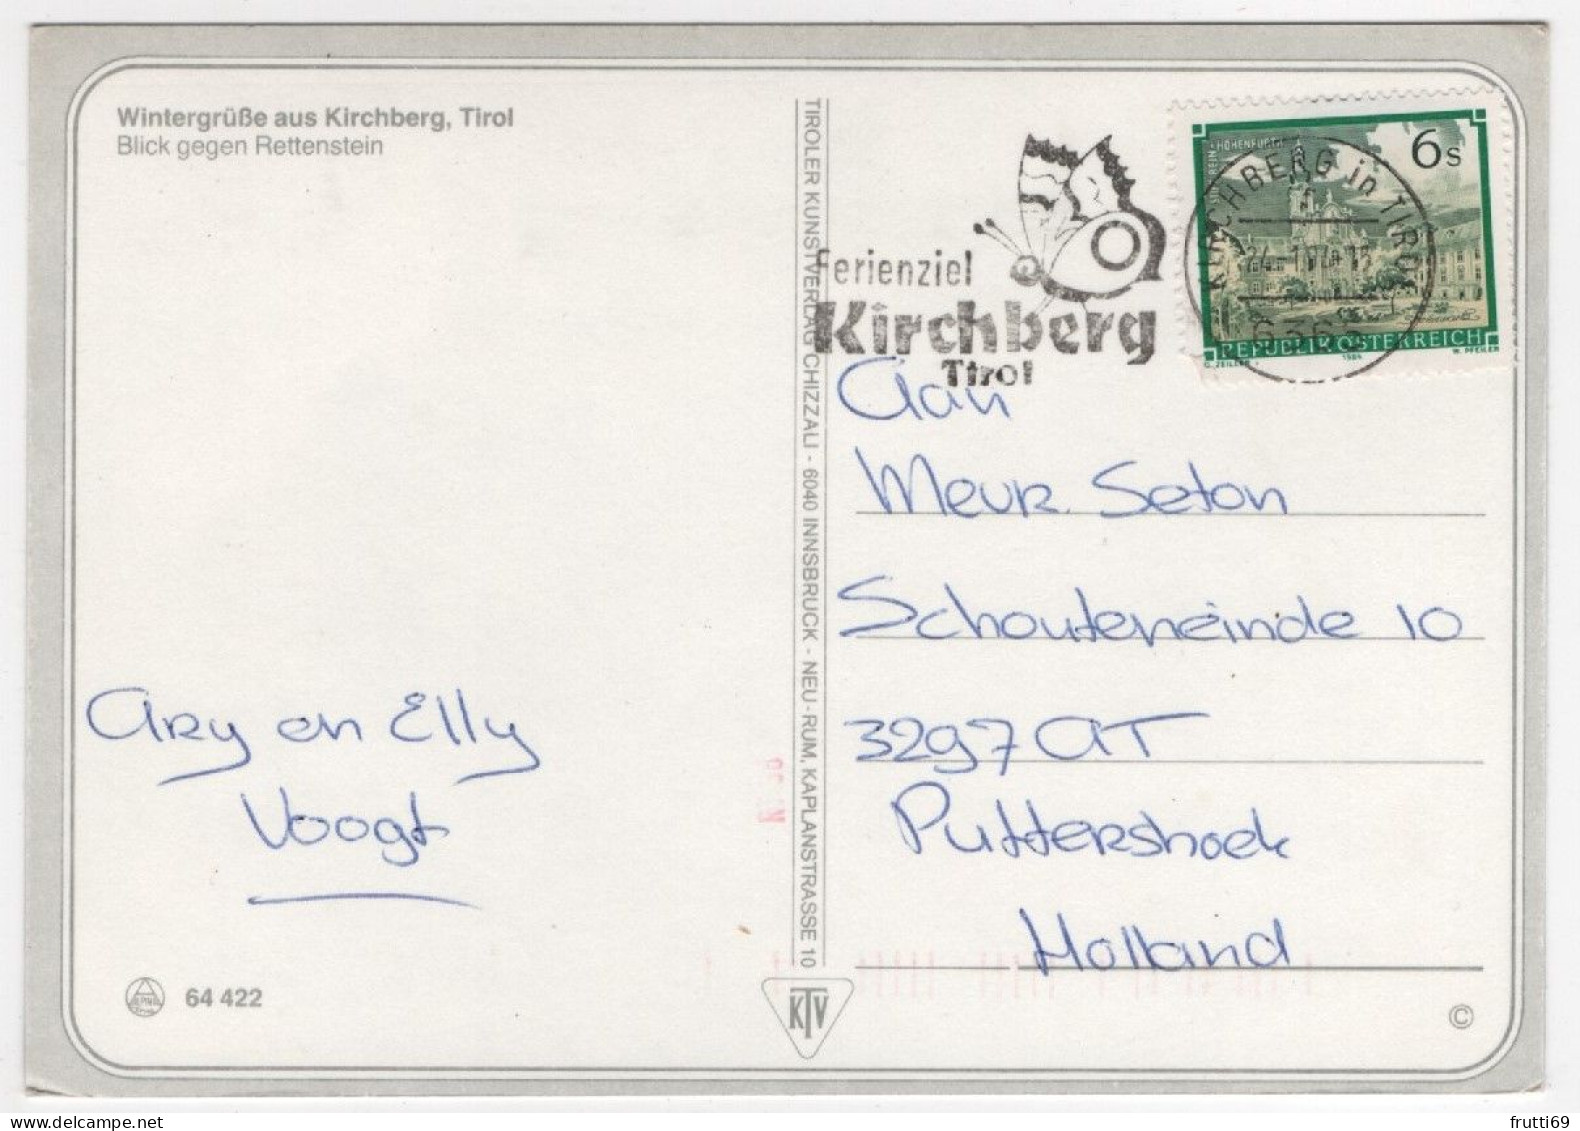 Wintergrüße aus Kirchberg, Tirol
Blick gegen Rettenstein
TIROLER KUNSTVERLAG CHIZZALI - 6040 INNSBRUCK - NEU-RUM, KAPLANSTRASSE 10
Ferienziel
Kirchberg
Tirol
KIRCHBERG in TIROL
6365
6 s
REPUBLIK ÖSTERREICH
G. ZEILLER
1984
W. PFEILER
Aan
Mevr. Seton
Schouteneinde 10
3297 AT
Puttershoek
Holland
Ary en Elly
Voogt
64 422
KTV
©
frutti69